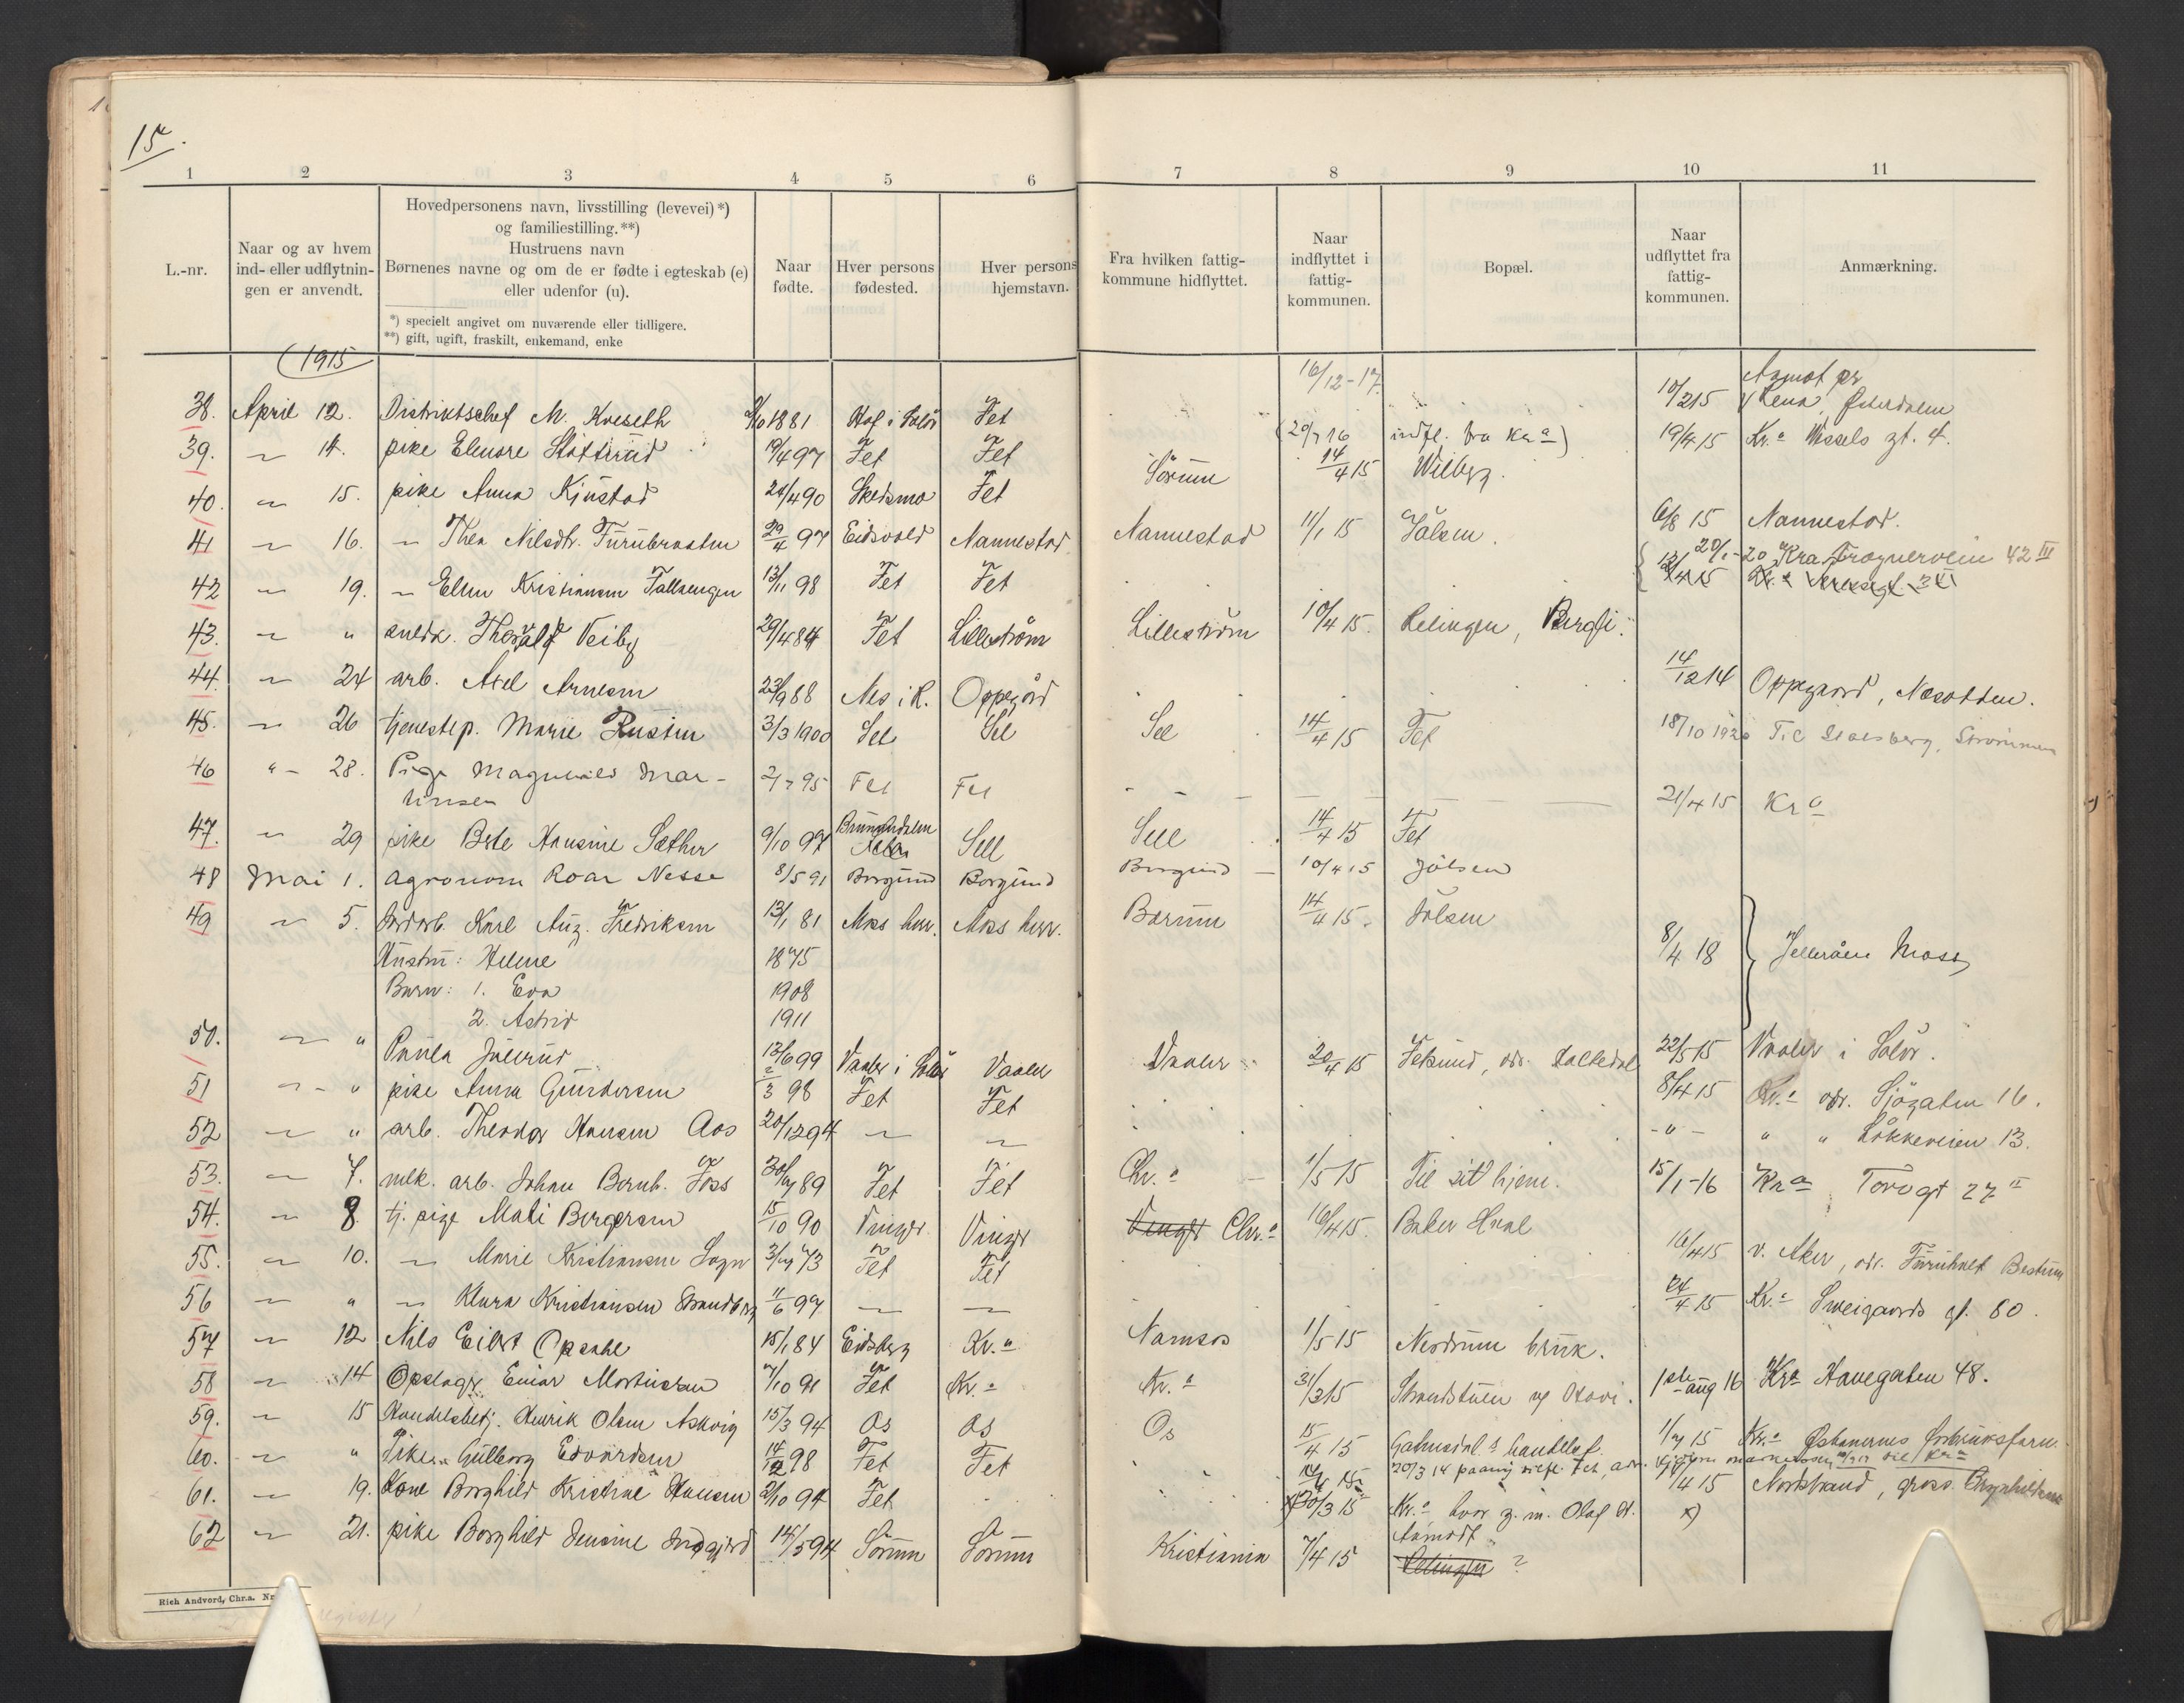 15.
1 2 3 4 5 6 7 8 9 10 11
L.-nr.
Naar og av hvem
ind- eller udflytnin-
gen er anvendt.
Hovedpersonens navn, livsstilling (levevei) *)
og familiestilling. **)
Hustruens navn
Børnenes navne og om de er fødte i egteskab (e)
eller udenfor (u).
*) specielt angivet om nuværende eller tidligere.
**) gift, ugift, fraskilt, enkemand, enke
Naar
fødte.
Hver persons
fødested.
Hver persons
hjemstavn.
Fra hvilken fattig-
kommune hidflyttet.
Naar
indflyttet i
fattig-
kommunen.
Bopæl.
Naar
udflyttet fra
fattig-
kommunen.
Anmærkning.
1915
16/12-17
Aamot pr
38. April 12. Distriktschef M. Kveseth 1881 Hof i Solør Fet 10/2 15 Rena, Østerdalen
39. " 14. pike Elenore Slåttsrud 19/4 97 Fet Fet (20/7 16 indfl. fra Kr.a) 19/4 15 Kr.a Wessels gt. 4.
40. " 15. pike Anna Kjustad 24/4 90 Skedsmo Fet Sørum 14/4 15 Wilberg.
41 " 16. " Thea Nilsdtr. Furubraaten 29/4 97 Eidsvold Nannestad Nannestad 11/1 15 Jålsen. 6/8 15 Nannestad.
20/1-20 Kra, Frognerveien 42 III
42 " 19. " Ellen Kristiansen Fallsengen 13/11 98 Fet Fet
43. " " snedk. Thoralf Veiby 29/4 84 Fet Lillestrøm Lillestrøm 10/4 15. Relingen, Bergli.
44. " 24 arb. Axel Arnesen 23/9 88 Nes i R. Oppegård 14/12 14 Oppegaard, Nesodden.
45. " 26 tjenestep. Marie Rusten 3/3 1900 Sel Sel Sel 14/4 15 Fet 18/10 1920 Til Stalsberg, Strømmen
46 " 28. Pige Magnhild Mar-
tinsen 2/7 95 Fet Fet 21/4 15 Kr a
47. " 29 pike Berte Hansine Sæther 9/10 97 Sell Sell 14/4 15 Fet
48 Mai 1. Agronom Roar Nesse 8/5 91 Borgund Borgund Borgund 10/4 15 Jølsen
49 " 5. Jordarb. Karl Aug. Fredriksen 13/1 81 Moss herr. Moss herr. Bærum 14/4 15. Jølsen
Hustru: Helene 1875 8/4 18 Jelleråen Moss
Barn: 1. Eva 1908
2. Astrid 1911
50. " " Paula Julsrud 13/6 99 Vaaler i Solør Vaaler Vaaler 20/4 15 Fetsund, adr. 22/5 15 Vaaler i Solør.
51 " " pike Anna Gundersen 2/3 98 Fet Fet 8/4 15 Kr.a adr. Sjøgaten 16.
52 " " arb. Theodor Hansen Aas 20/12 94 " " -"- " " Løkkeveien 13.
53. " 7. mek. arb. Johan Bernh. Foss 30/7 89 Fet Fet Chr.a 1/5-15 Til sit hjem. 15/1-16 Kr a Torvgt 27 II
54. " 8. tj. pige Mali Bergersen 15/10 90 Vinger Vinger Vinger Chr.a 16/4 15. Baker Hval
55. " 10. " Marie Kristiansen Sogn 3/7 73 Fet Fet 16/4 15 v. Aker, adr. Furuholt Bestum
56 " " " Klara Kristiansen Strandberg 11/6 97 " " 24/4 15 Kr.a Sweigaards gt. 80.
57 " 12 Nils Eilert Opsahl 15/1 84 Eidsberg Kr.a Namsos 1/5 15 Nerdrum bruk.
58 " 14 Opslager Einar Martinsen 7/10 91 Fet Kr.a Kr.a 31/3 15 Strandstuen 1ste aug 16 Kra Havegaten 48.
59. " 15 Handelsbetj. Henrik Olsen Askvig 15/3 94 Os Os Os 15/4 15 1/7 15 Kr.a Østbanernes
60. " " Pike Gullborg Edvardsen 14/12 98 Fet Fet 20/3 14
61. " 19. Kone Borghild Kristine Hansen 2/10 94 Fet x) 30/3 15 Kr.a hvor g. m. Olaf A. Aamodt 1/4 15 Nordstrand,
x)
62 " 21. pike Borghild Jensine 14/5 94 Sørum Sørum Kristiania 7/4 15 Relingen ?
Rich Andvord, Chr.a. Nr